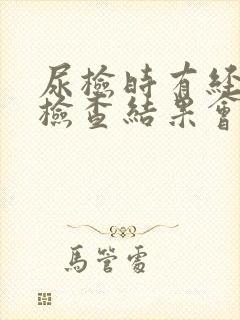 尿檢時有經
檢查結果會
馬管電